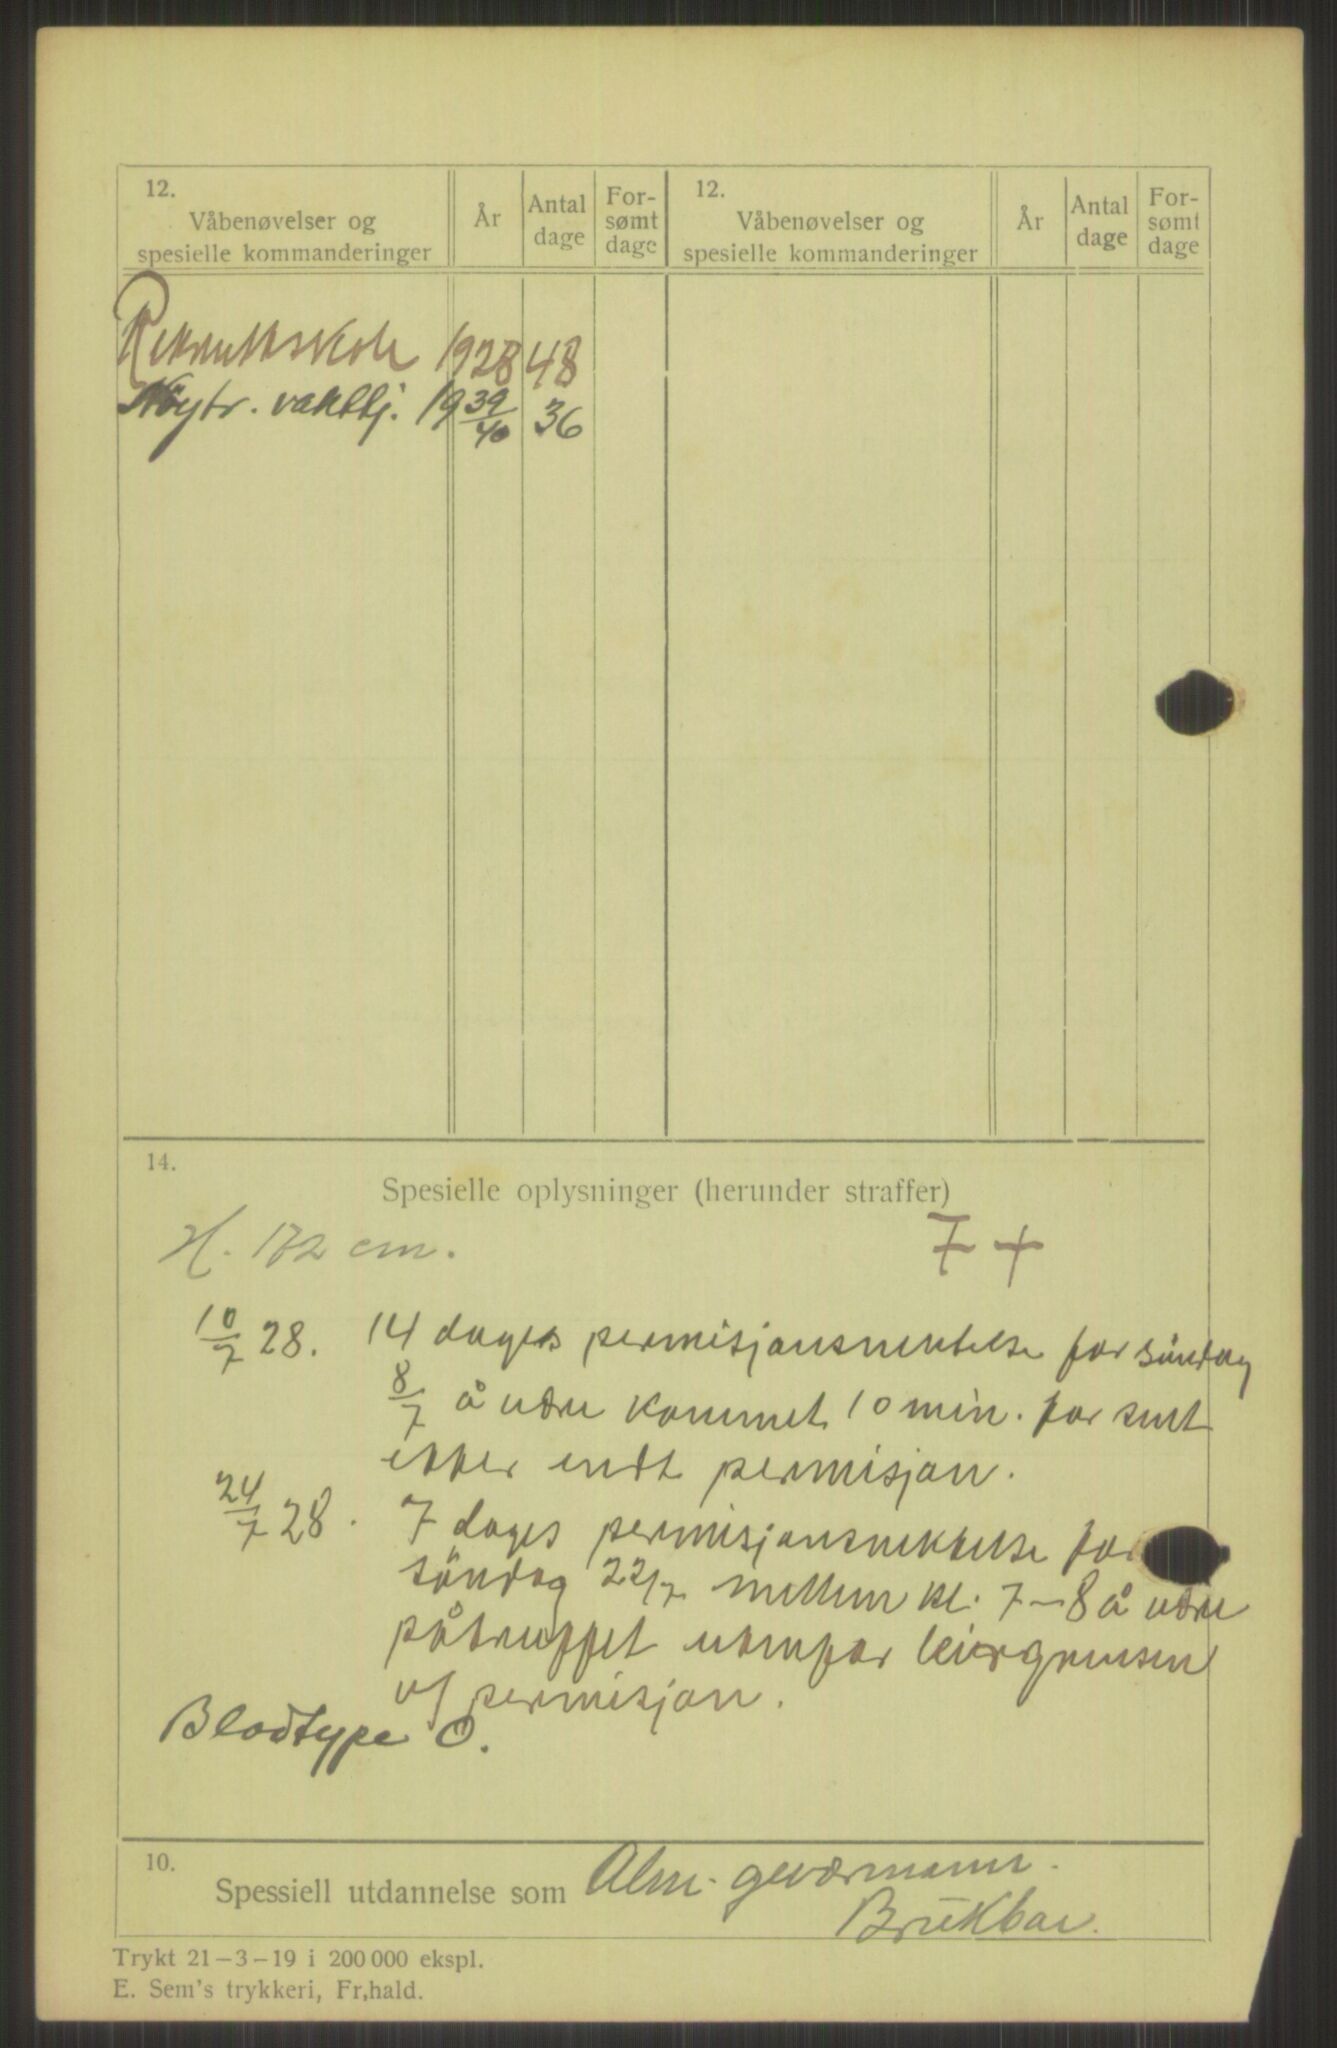 12.
Våbenøvelser og
spesielle kommanderinger
År
Antal
dage
For-
sømt
dage
12.
Våbenøvelser og
spesielle kommanderinger
År
Antal
dage
For-
sømt
dage
Rekruttskole 1928 48
Nøytr. vakttj. 19 39/40 36
14.
Spesielle oplysninger (herunder straffer)
H. 172 cm.
7 +
10/7 28. 14 dages permisjonsnektelse for söndag
8/7 å være kommet 10 min. for sent
efter endt permisjon.
24/7 28. 7 dages permisjonsnektelse for
söndag 22/7 mellem kl. 7-8 å være
påtruffet utenfor leirgrensen
u/ permisjon.
Blodtype O.
10.
Spessiell utdannelse som Alm. geværmann.
Brukbar.
Trykt 21-3-19 i 200 000 ekspl.
E. Sem's trykkeri, Fr,hald.